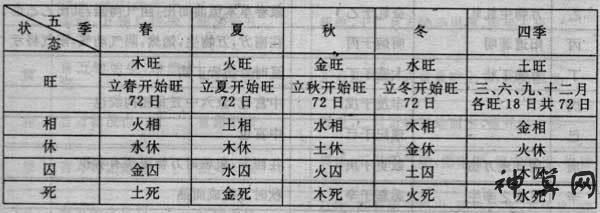 五 季
状 态 春 夏 秋 冬 四季
木旺 火旺 金旺 水旺 土旺
旺 立春开始旺 立夏开始旺 立秋开始旺 立冬开始旺 三、六、九、十二月
72日 72日 72日 72日 各旺18日共72日
相 火相 土相 水相 木相 金相
休 水休 木休 土休 金休 火休
囚 金囚 水囚 火囚 土囚 木囚
死 土死 金死 木死 火死 水死
神算网